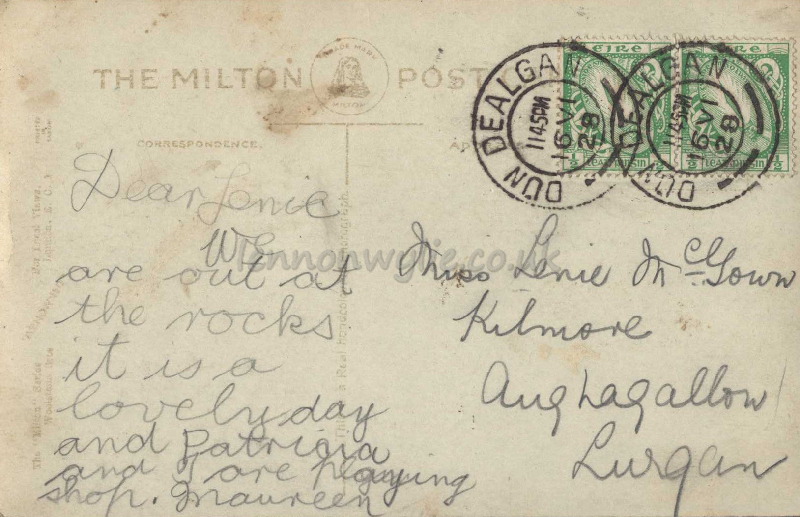 THE MILTON POST
TRADE MARK
MILTON
CORRESPONDENCE.
DUN DEALGAN
11 45PM
16 VI
28
DUN DEALGAN
11 45PM
16 VI
28
éire
½ leatpinsin ½
Dear Lenie
We
are out at
the rocks
it is a
lovely day
and Patricia
and I are playing
shop. Maureen
Miss Lenie McGown
Kilmore
Aughagallow
Lurgan
lennonwylie.co.uk
This is a Real Photograph.
The "Milton" Series
London, E.C.